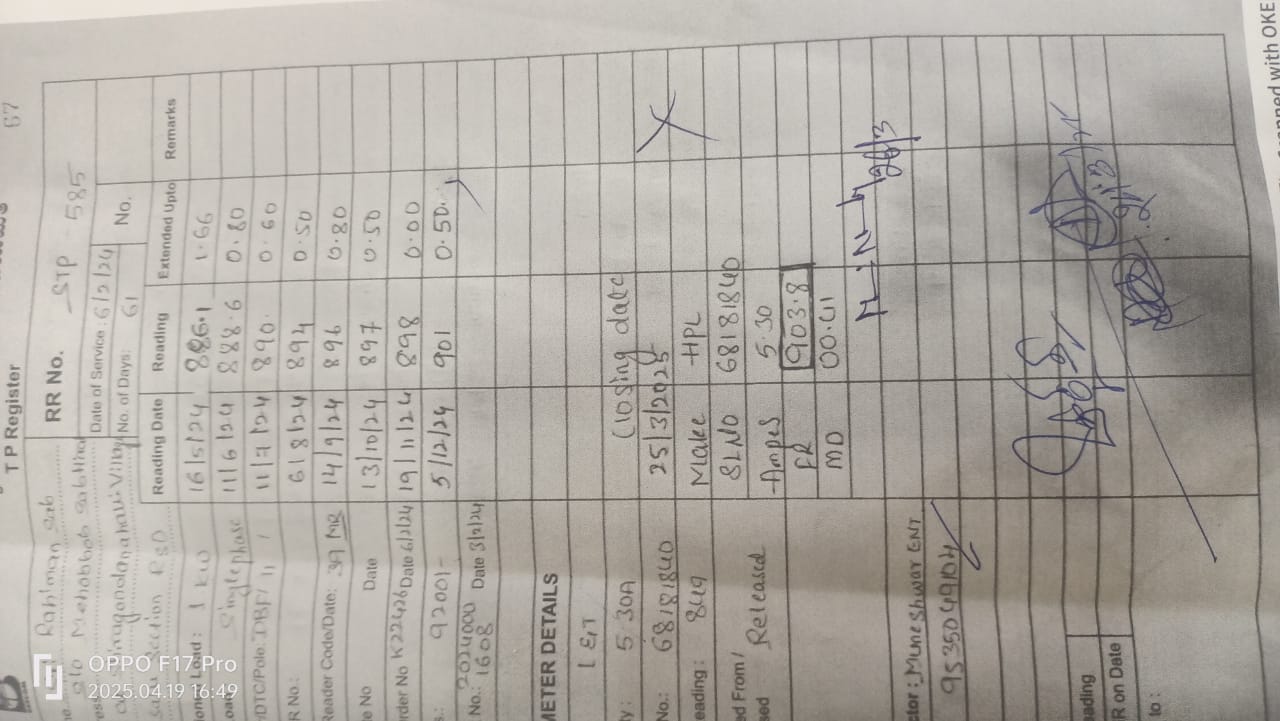 T P Register
67
Rahiman sab
RR No. STP - 585
S/o Mehabbob
Date of Service : 6/2/24
No. of Days: 61
No.
Reading Date Reading Extended Upto Remarks
16/5/24 886.1 1.66
11/6/24 888.6 0.80
11/7/24 890. 0.60
6/8/24 894 0.50
14/9/24 896 0.80
13/10/24 897 0.50
19/11/24 898 0.00
5/12/24 901 0.50
Load: 1 KW
Singlephase
R No.:
Reader Code/Date: 39 MR
e No Date
rder No K22426 Date 6/2/24
92001-
2024000
No.: 1608 Date 3/2/24
METER DETAILS
L &T
ty: 5 30A
No.: 68181840
eading: 849
ed From/
sed Released
ctor: Muneshwar ENT
9535049104
Closing date
25/3/2025
Make HPL
SL NO 68181840
Ampes 5.30
FR 903.8
MD 00.41
eading
R on Date
to :
OPPO F17 Pro
2025.04.19 16:49
anned with OKE